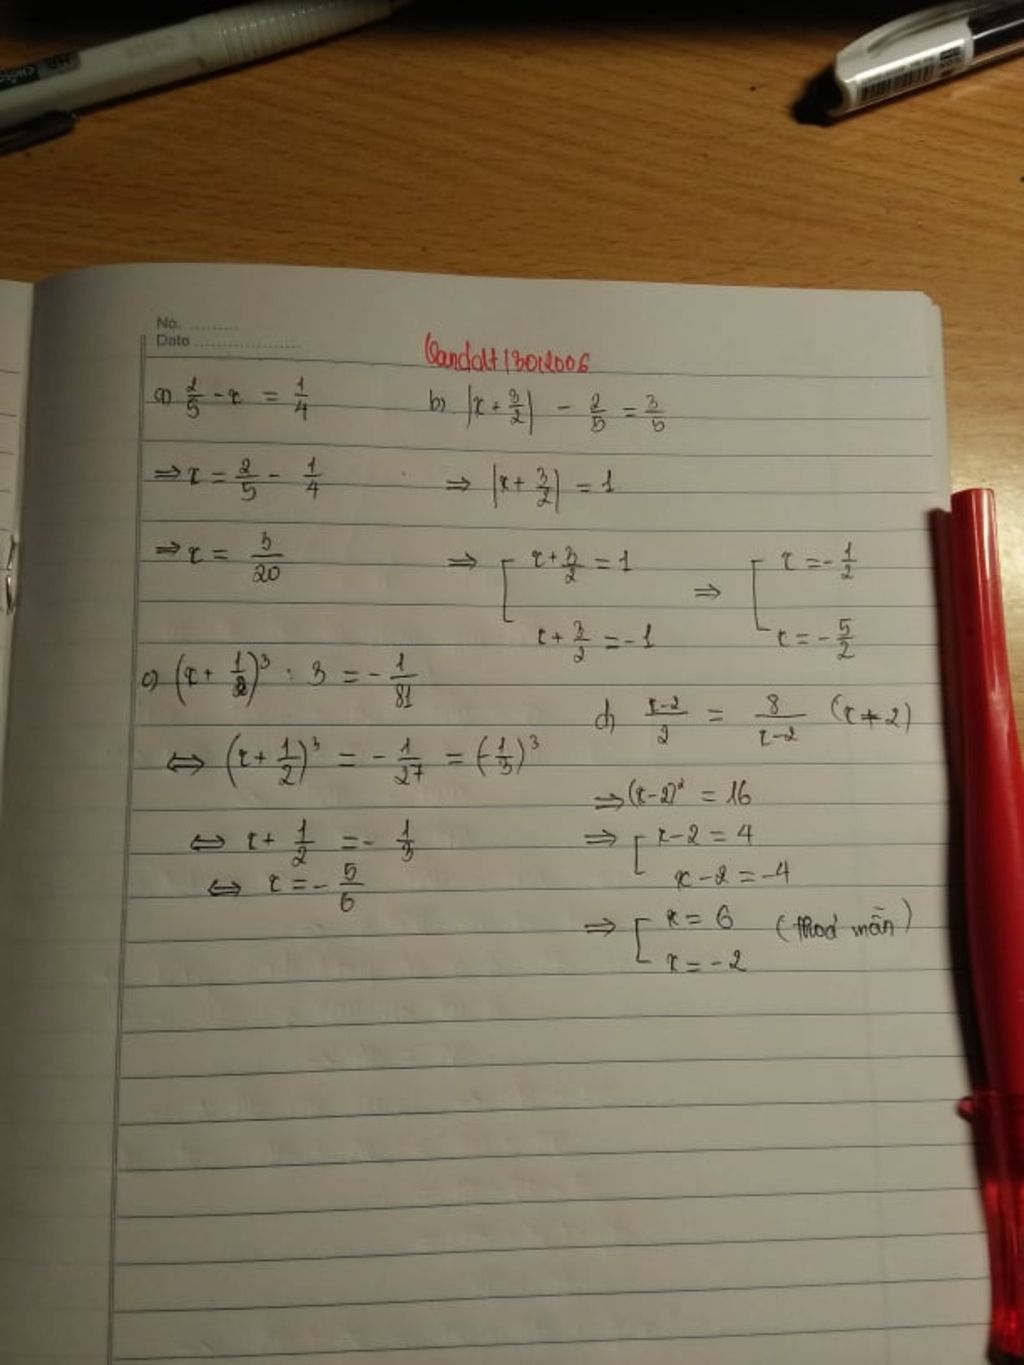 No. ..........
Date ....................
a) 2/5 - x = 1/4
⇒ x = 2/5 - 1/4
⇒ x = 3/20
b) |x + 3/2| - 2/5 = 3/5
⇒ |x + 3/2| = 1
⇒ [ x + 3/2 = 1 ⇒ [ x = -1/2
x + 3/2 = -1 x = -5/2
c) (x + 1/2)³ : 3 = -1/81
⇔ (x + 1/2)³ = -1/27 = (-1/3)³
⇔ x + 1/2 = -1/3
⇔ x = -5/6
d) x-2/2 = 8/x-2 (x ≠ 2)
⇒ (x-2)² = 16
⇒ [ x-2 = 4
x-2 = -4
⇒ [ x = 6 (thoả mãn)
x = -2